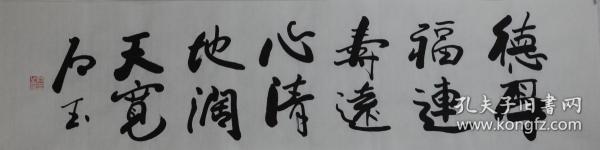 德厚
福連
壽遠
心清
地濶
天寬
石玉
孔夫子旧书网
www.kongfz.com